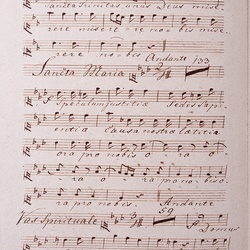 sancta trinitas unus Deus mise-
rere miserere nobis mise-
rere nobis Andante 133
Sancta Maria
Speculum justitia Sedes sapi-
entia Causa nostra latitia
ora pro nobis o ra
o ra ora pro nobis o
ra pro nobis. Andante
Vas spirituale 59
Domus